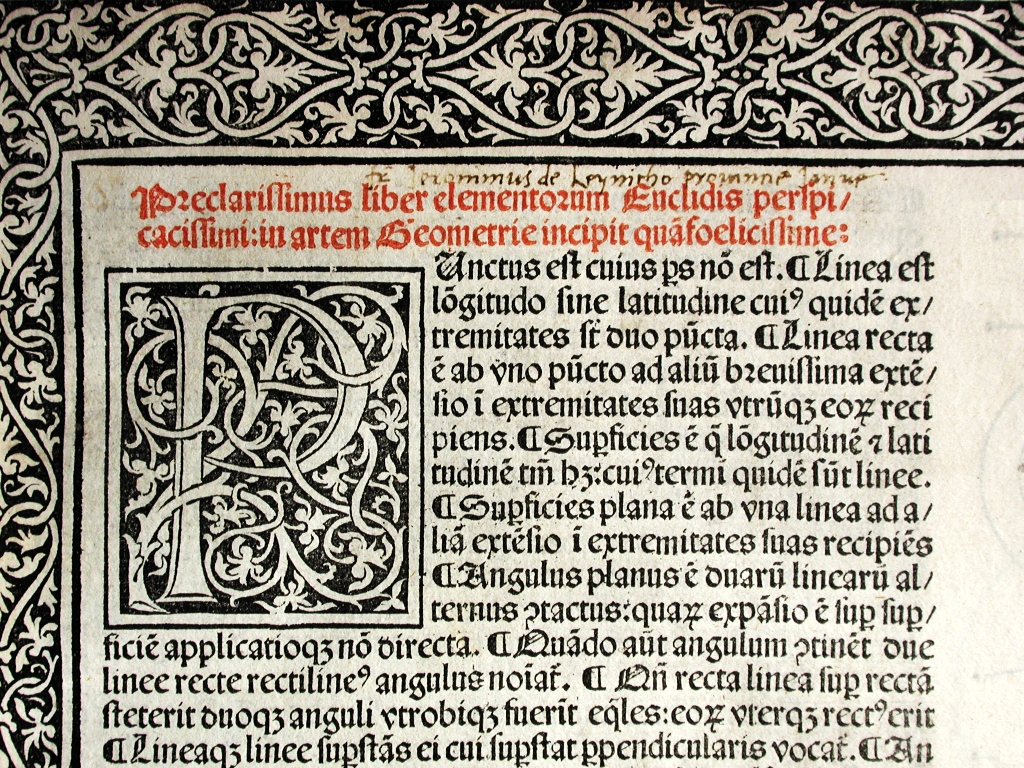 fr Jeronimus de Keynitho provincie
Preclarissimus liber elementorum Euclidis perspi/
cacissimi: in artem Geometrie incipit quãfoelicissime:
PUnctus est cuius ps nõ est. ¶ Linea est
lõgitudo sine latitudine cuiꝰ quidẽ ex/
tremitates st̃ duo pũcta. ¶ Linea recta
ẽ ab vno pũcto ad aliũ breuissima extẽ/
sio ĩ extremitates suas vtrũqꝫ eoꝝ reci
piens. ¶ Supficies ẽ q̃ lõgitudinẽ ⁊ lati
tudinẽ tm̃ hꝫ: cuiꝰ termĩ quidẽ sũt linee.
¶ Supficies plana ẽ ab vna linea ad a/
liã extẽsio ĩ extremitates suas recipiẽs
¶ Angulus planus ẽ duarũ linearũ al/
ternus ꝯtactus: quaꝝ expãsio ẽ sup sup/
ficiẽ applicatioqꝫ nõ directa. ¶ Quãdo aũt angulum ꝯtinẽt due
linee recte rectilineꝰ angulus noĩat̃. ¶ Qñ recta linea sup rectã
steterit duoqꝫ anguli vtrobiqꝫ fuerĩt eq̃les: eoꝝ vterqꝫ rectꝰ erit
¶ Lineaqꝫ linee supstãs ei cui supstat ppendicularis vocat̃. ¶ An